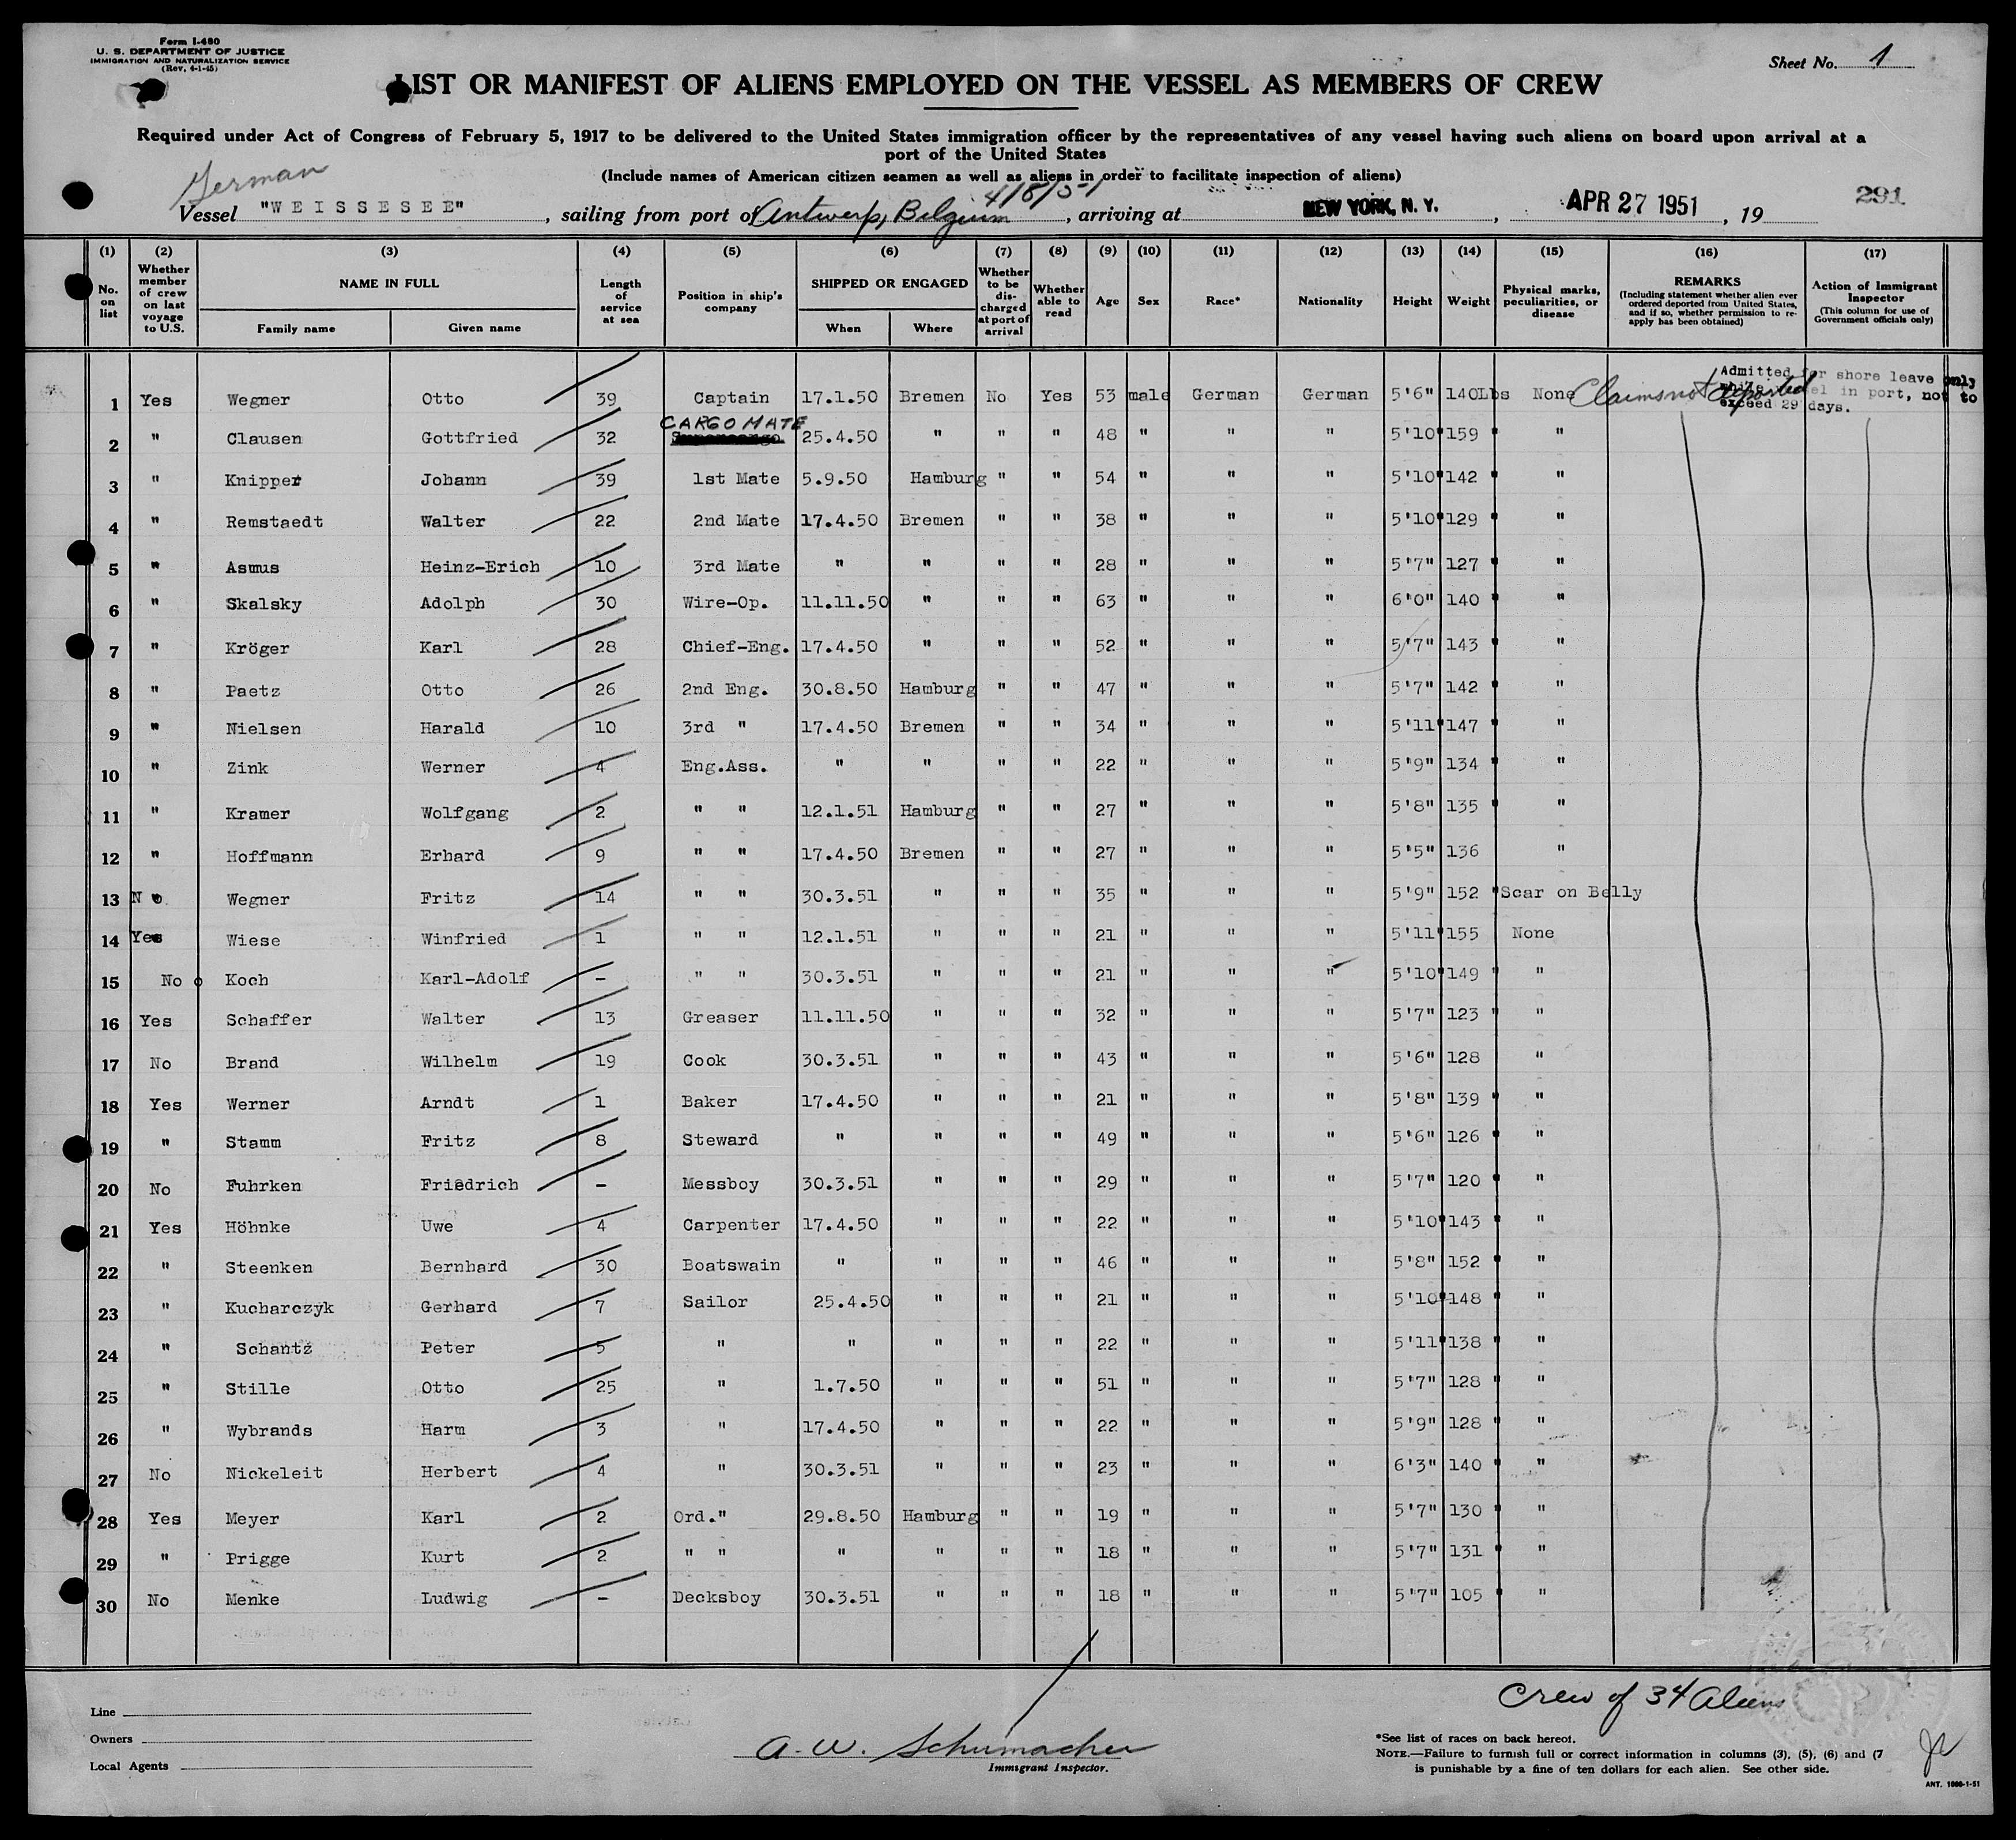 Form I-480
U. S. DEPARTMENT OF JUSTICE
IMMIGRATION AND NATURALIZATION SERVICE
(Rev. 4-1-45)
Sheet No. 1
LIST OR MANIFEST OF ALIENS EMPLOYED ON THE VESSEL AS MEMBERS OF CREW
Required under Act of Congress of February 5, 1917 to be delivered to the United States immigration officer by the representatives of any vessel having such aliens on board upon arrival at a
port of the United States
(Include names of American citizen seamen as well as aliens in order to facilitate inspection of aliens)
German
4/8/51
291
Vessel "WEISSESEE", sailing from port of Antwerp, Belgium, arriving at NEW YORK, N. Y., APR 27 1951, 19
(1) (2) (3) (4) (5) (6) (7) (8) (9) (10) (11) (12) (13) (14) (15) (16) (17)
No. on list
Whether member of crew on last voyage to U.S.
NAME IN FULL
Family name
Given name
Length of service at sea
Position in ship's company
SHIPPED OR ENGAGED
When
Where
Whether to be discharged at port of arrival
Whether able to read
Age
Sex
Race*
Nationality
Height
Weight
Physical marks, peculiarities, or disease
REMARKS
(Including statement whether alien ever ordered deported from United States, and if so, whether permission to reapply has been obtained)
Action of Immigrant Inspector
(This column for use of Government officials only)
Admitted for shore leave only
in port, not to
exceed 29 days.
Claims not deported
1 Yes Wegner Otto 39 Captain 17.1.50 Bremen No Yes 53 male German German 5'6" 140Lbs None
CARGO MATE
2 " Clausen Gottfried 32 25.4.50 " " " 48 " " " 5'10" 159 " "
3 " Knipper Johann 39 1st Mate 5.9.50 Hamburg " " 54 " " " 5'10" 142 " "
4 " Remstaedt Walter 22 2nd Mate 17.4.50 Bremen " " 38 " " " 5'10" 129 " "
5 " Asmus Heinz-Erich 10 3rd Mate " " " " 28 " " " 5'7" 127 " "
6 " Skalsky Adolph 30 Wire-Op. 11.11.50 " " " 63 " " " 6'0" 140 " "
7 " Kröger Karl 28 Chief-Eng. 17.4.50 " " " 52 " " " 5'7" 143 " "
8 " Paetz Otto 26 2nd Eng. 30.8.50 Hamburg " " 47 " " " 5'7" 142 " "
9 " Nielsen Harald 10 3rd " 17.4.50 Bremen " " 34 " " " 5'11" 147 " "
10 " Zink Werner 4 Eng.Ass. " " " " 22 " " " 5'9" 134 " "
11 " Kramer Wolfgang 2 " " 12.1.51 Hamburg " " 27 " " " 5'8" 135 " "
12 " Hoffmann Erhard 9 " " 17.4.50 Bremen " " 27 " " " 5'5" 136 "
13 No Wegner Fritz 14 " " 30.3.51 " " " 35 " " " 5'9" 152 " Scar on Belly
14 Yes Wiese Winfried 1 " " 12.1.51 " " " 21 " " " 5'11" 155 None
15 No Koch Karl-Adolf - " " 30.3.51 " " " 21 " " " 5'10" 149 " "
16 Yes Schaffer Walter 13 Greaser 11.11.50 " " " 32 " " " 5'7" 123 " "
17 No Brand Wilhelm 19 Cook 30.3.51 " " " 43 " " " 5'6" 128 "
18 Yes Werner Arndt 1 Baker 17.4.50 " " " 21 " " " 5'8" 139 " "
19 " Stamm Fritz 8 Steward " " " " 49 " " " 5'6" 126 " "
20 No Fuhrken Friedrich - Messboy 30.3.51 " " " 29 " " " 5'7" 120 " "
21 Yes Höhnke Uwe 4 Carpenter 17.4.50 " " " 22 " " " 5'10" 143 " "
22 " Steenken Bernhard 30 Boatswain " " " " 46 " " " 5'8" 152 " "
23 " Kucharczyk Gerhard 7 Sailor 25.4.50 " " " 21 " " " 5'10" 148 " "
24 " Schantz Peter 5 " " " " " 22 " " " 5'11" 138 " "
25 " Stille Otto 25 " 1.7.50 " " " 51 " " " 5'7" 128 " "
26 " Wybrands Harm 3 " 17.4.50 " " " 22 " " " 5'9" 128 " "
27 No Nickeleit Herbert 4 " 30.3.51 " " " 23 " " " 6'3" 140 " "
28 Yes Meyer Karl 2 Ord." 29.8.50 Hamburg " " 19 " " " 5'7" 130 " "
29 " Prigge Kurt 2 " " " " " " 18 " " " 5'7" 131 " "
30 No Menke Ludwig - Decksboy 30.3.51 " " " 18 " " " 5'7" 105 " "
Crew of 34 Aliens
Line
Owners
Local Agents
A. W. Schumacher
Immigrant Inspector.
*See list of races on back hereof.
NOTE.—Failure to furnish full or correct information in columns (3), (5), (6) and (7
is punishable by a fine of ten dollars for each alien. See other side.
ANT. 1000-1-51